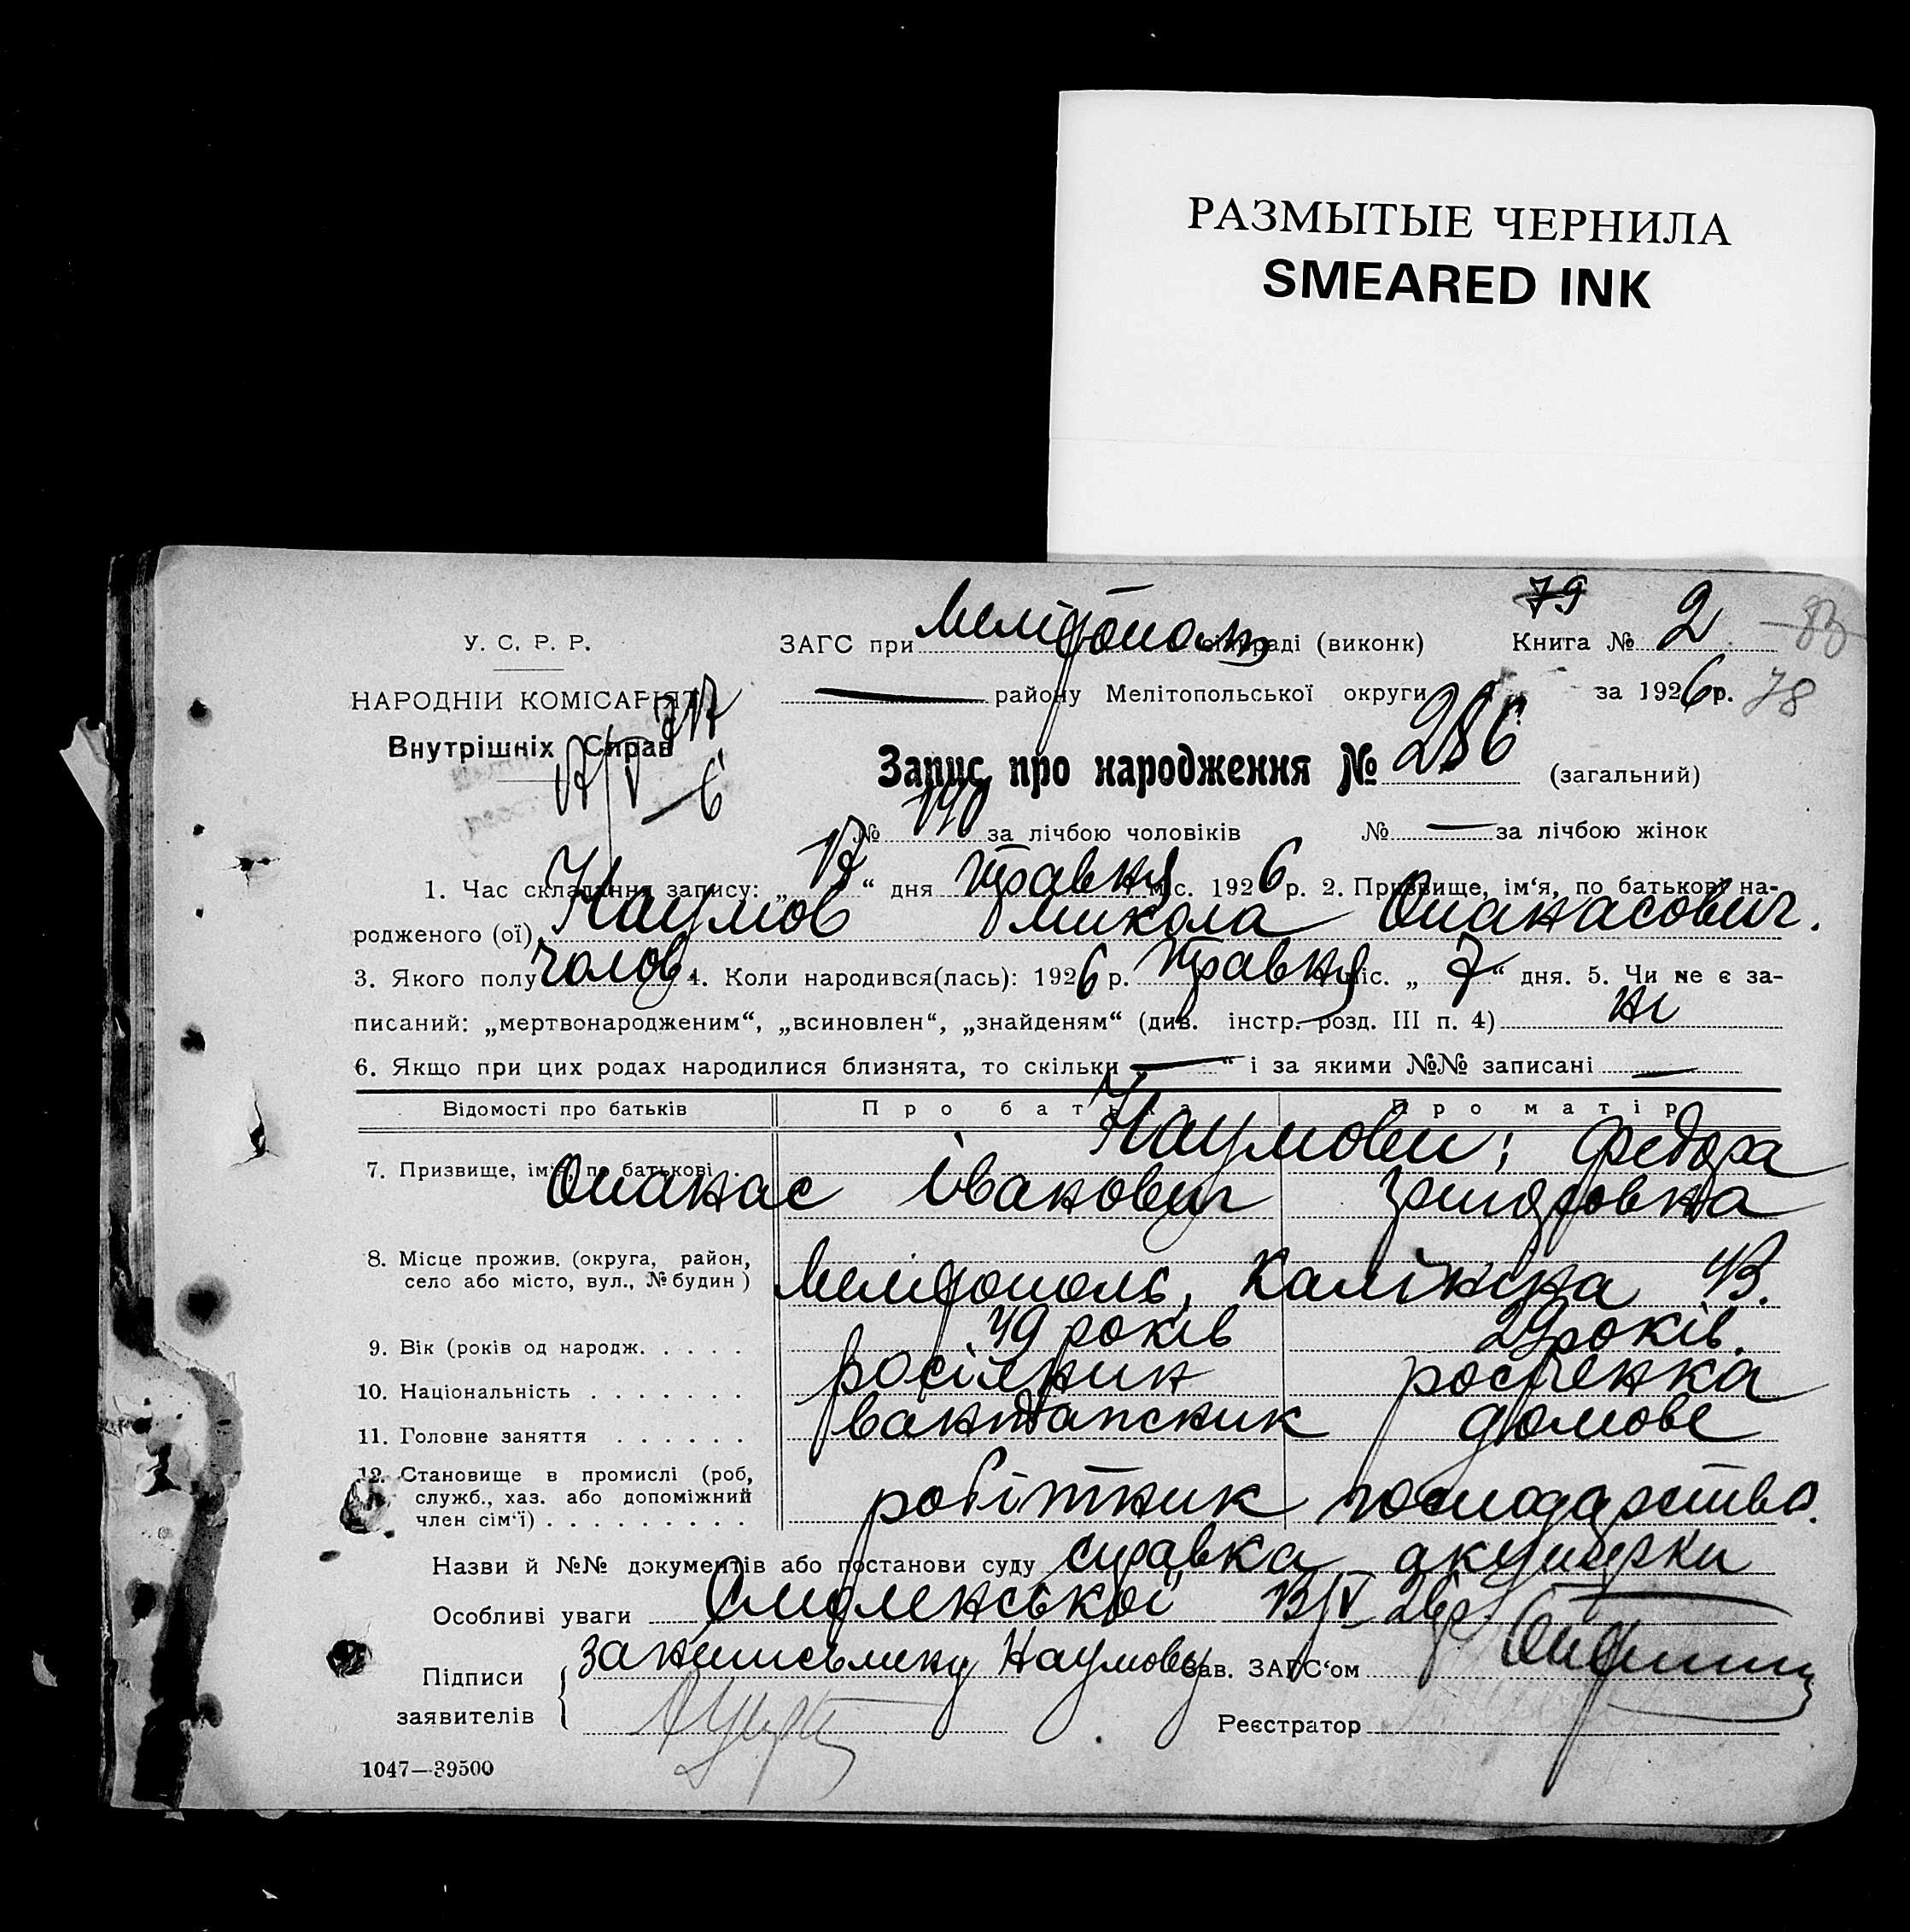 РАЗМЫТЫЕ ЧЕРНИЛА
SMEARED INK
79
У. С. Р. Р. ЗАГС при Мелітополь раді (виконк) Книга № 2 83
НАРОДНІЙ КОМІСАРІЯТ — району Мелітопольської округи за 1926 р. 78
Внутрішніх Справ
Запис про народження № 286 (загальний)
№ за лічбою чоловіків № — за лічбою жінок
1. Час складання запису: „ “ дня травня міс. 1926 р. 2. Призвище, ім‘я, по батькові на-
родженого (ої) Наумов Микола Опанасович.
3. Якого полу чолов. 4. Коли народився(лась): 1926 р. травня міс. „ 7 “ дня. 5. Чи не є за-
писаний: „мертвонародженим“, „всиновлен“, „знайденям“ (див. інстр. розд. III п. 4) ні
6. Якщо при цих родах народилися близнята, то скільки „ — “ і за якими №№ записані —
Відомості про батьків Про батька Про матір
7. Призвище, ім‘я, по батькові Наумови: Федора
Опанас Іванович
8. Місце прожив. (округа, район,
село або місто, вул., № будин) Мелітополь, Калініна 43.
9. Вік (років од народж. . . . . 49 років 29 років.
10. Національність . . . . . . . росіянин росіенка
11. Головне заняття . . . . . . домове
12. Становище в промислі (роб,
служб., хаз. або допоміжний робітник господарство.
член сім‘ї) . . . . . . . . .
Назви й №№ документів або постанови суду справка акушерки
Особливі уваги Смоленської 13/V 26 р
Підписи за неписьмену Наумову Зав. ЗАГС‘ом
заявителів Реєстратор
1047—39500